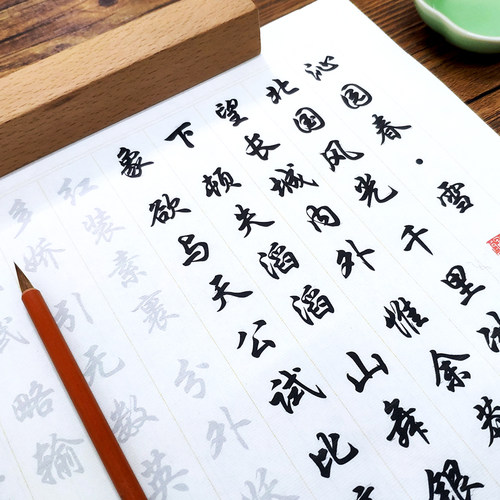 沁园春·雪
北国风光千里冰
望长城内外惟余莽
下顿失滔滔山舞银
象欲与天公试比
红装素裹分外妖
多娇引无数英
武略输